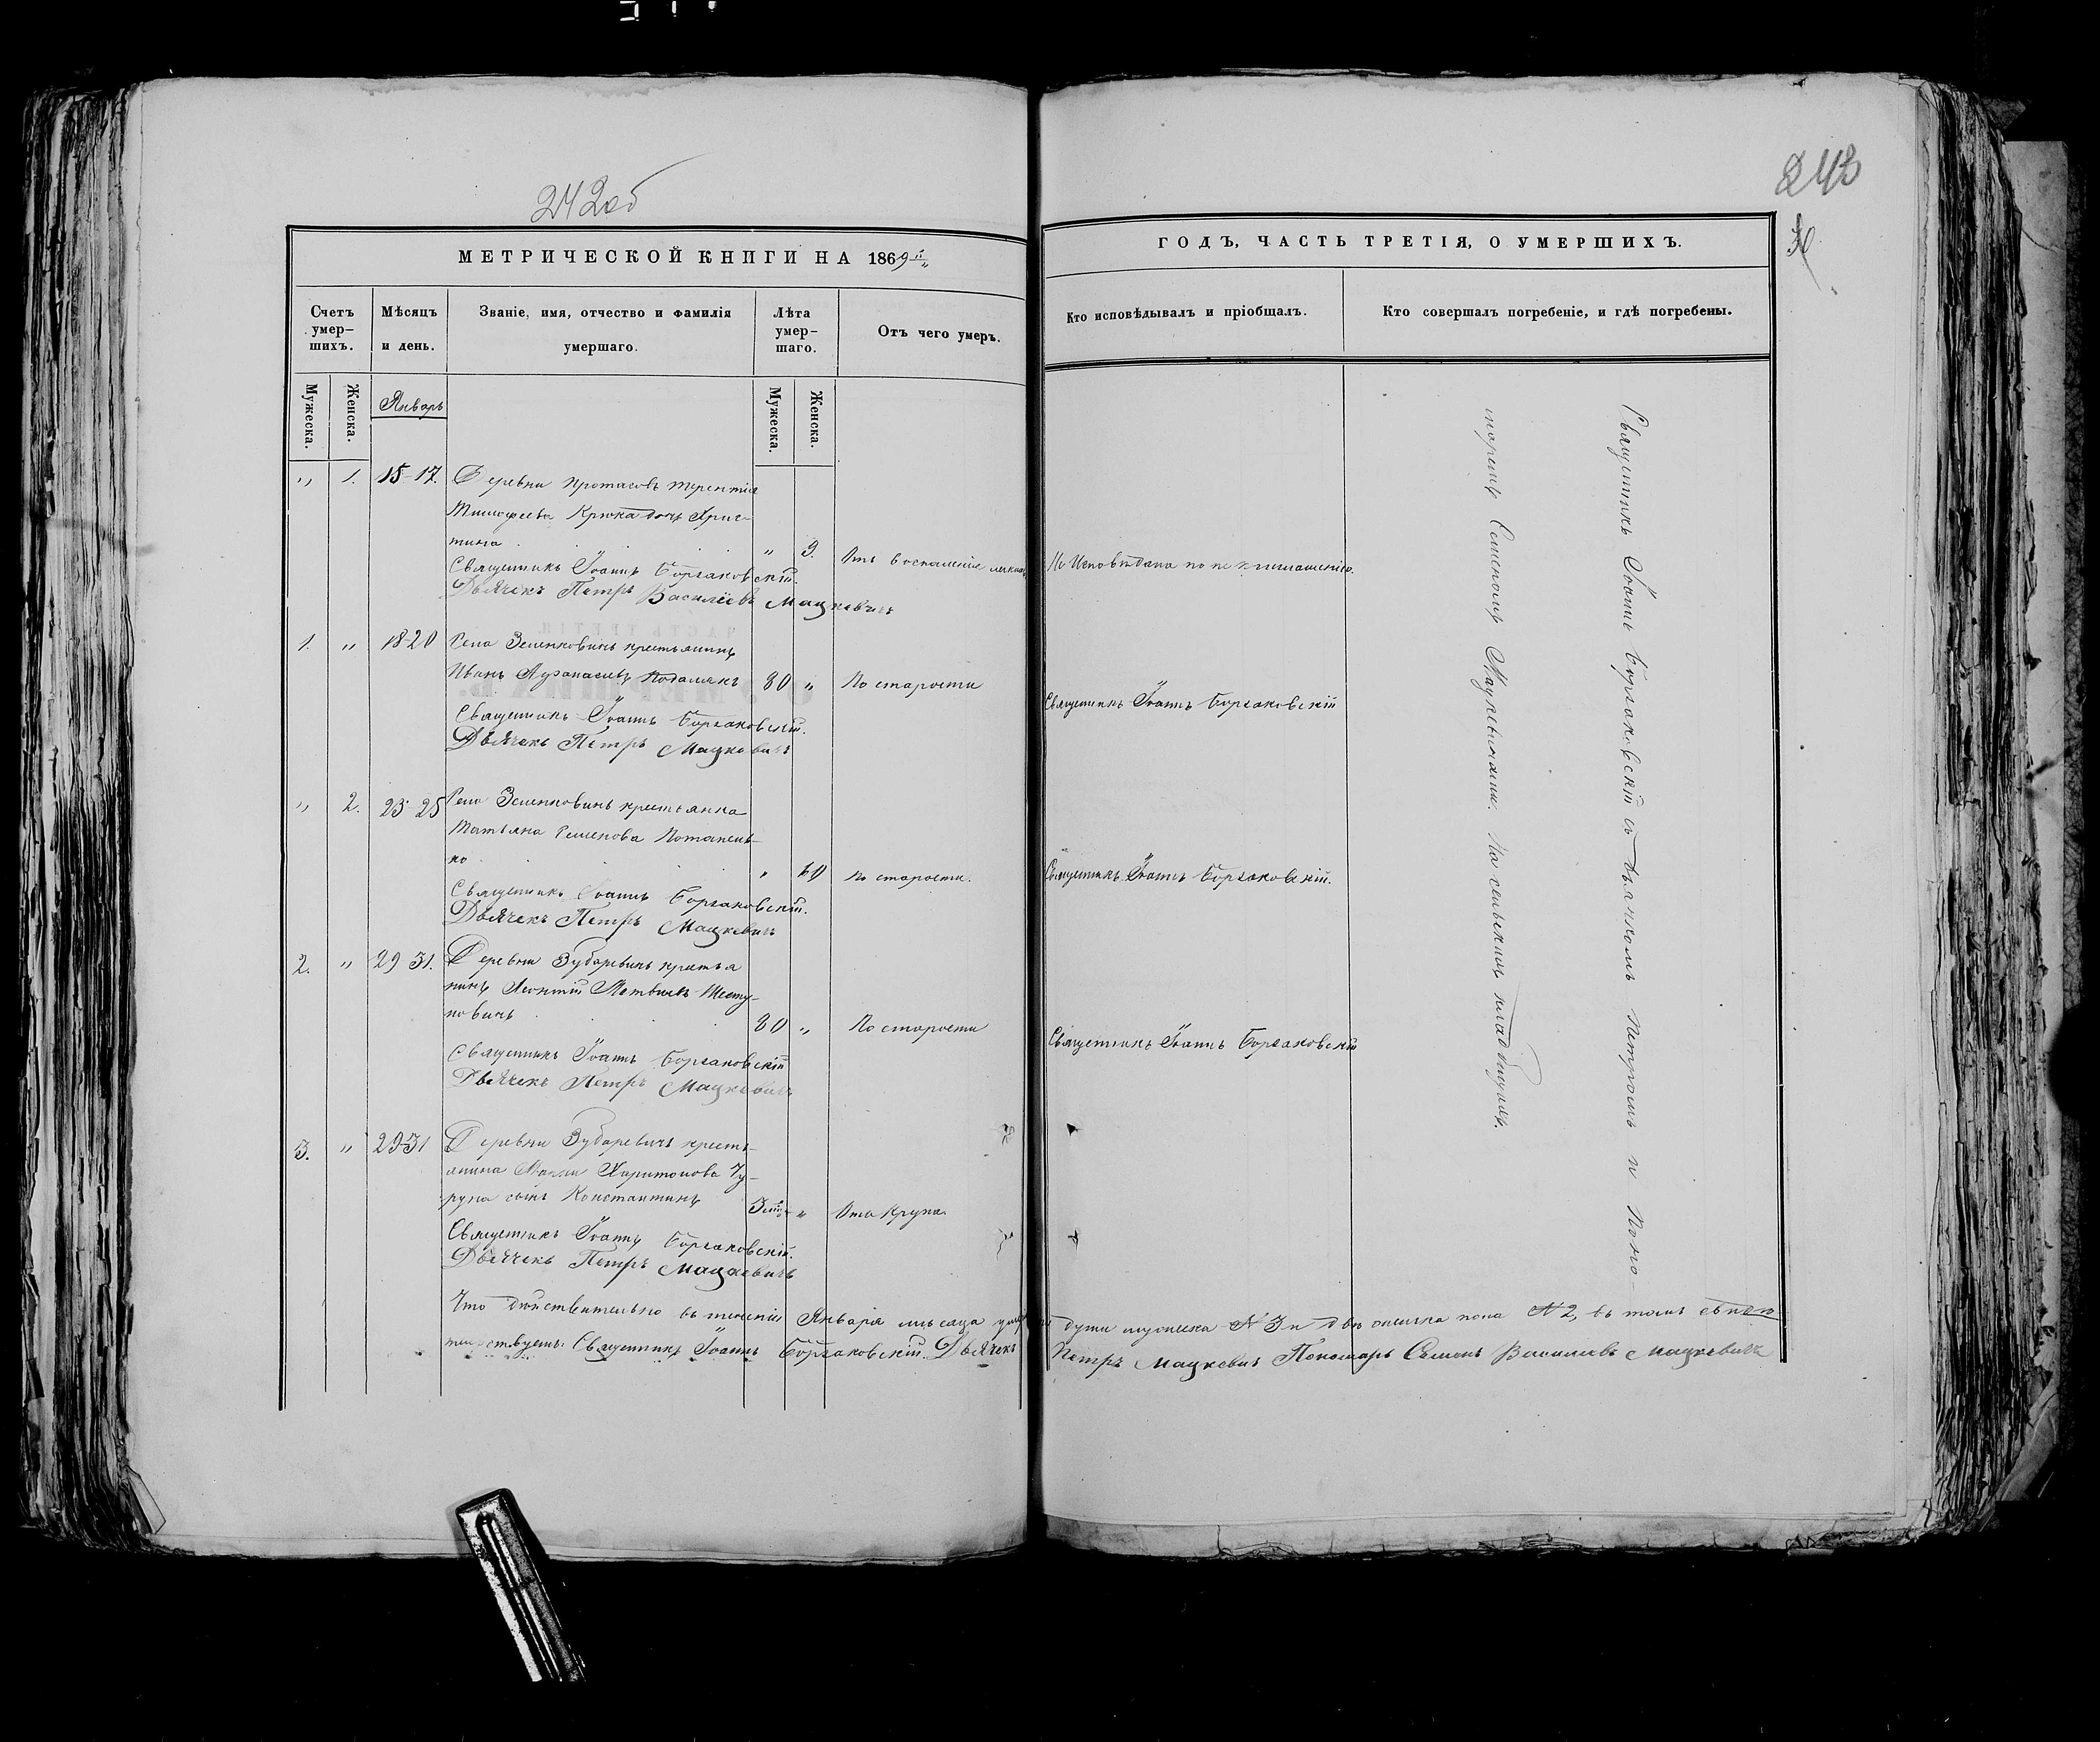 242об
243
МЕТРИЧЕСКОЙ КНИГИ НА 1869
ГОДЪ, ЧАСТЬ ТРЕТІЯ, О УМЕРШИХЪ.
Счетъ умер–шихъ.
Мѣсяцъ и день.
Званіе, имя, отчество и фамилія умершаго.
Лѣта умер–шаго.
Отъ чего умеръ.
Кто исповѣдывалъ и пріобщалъ.
Кто совершалъ погребеніе, и гдѣ погребены.
Мужеска.
Женска.
Январь
Мужеска.
Женска.
„ 1. 15–17. Деревни Протасовъ Терентія
Тимофеева Крюка дочь Хрис–
тина „ 9. Отъ воспаленія Не исповѣдана по не приглашенію.
Священникъ Іоаннъ Борзаковскій.
Дьячекъ Петръ Васильевъ Мацкевичъ
1. „ 18–20 Села Зеленковичъ крестьянинъ
Иванъ Афанасьевъ 80 „ По старости Священникъ Іоаннъ Борзаковскій
Священникъ Іоаннъ Борзаковскій.
Дьячекъ Петръ Мацкевичъ
„ 2. 23–25 Села Зеленковичъ крестьянка
Татьяна Семенова Потапень–
ко „ 60 По старости. Священникъ Іоаннъ Борзаковскій.
Священникъ Іоаннъ Борзаковскій.
Дьячекъ Петръ Мацкевичъ
2. „ 29–31. Деревни Зубаревичъ крестья
нинъ Леонтій Матвѣевъ
новичъ 80 „ По старости Священникъ Іоаннъ Борзаковскій
Священникъ Іоаннъ Борзаковскій
Дьячекъ Петръ Мацкевичъ
3. „ 29–31 Деревни Зубаревичъ кресть–
янина Харитонова Чу–
руна сынъ Константинъ „ Отъ Крупа.
Священникъ Іоаннъ Борзаковскій.
Дьячекъ Петръ Мацкевичъ
Священникъ Іоаннъ Борзаковскій съ дьячкомъ Петромъ и Поно–
маремъ Семеномъ Мацкевичами. На сельскомъ кладбищѣ.
Что дѣйствительно въ теченіи Января мѣсяца души мужеска № 3 и две женска пола № 2, въ томъ свидѣ
тельствуемъ: Священникъ Іоаннъ Борзаковскій. Дьячекъ Петръ Мацкевичъ Пономарь Семенъ Васильевъ Мацкевичъ